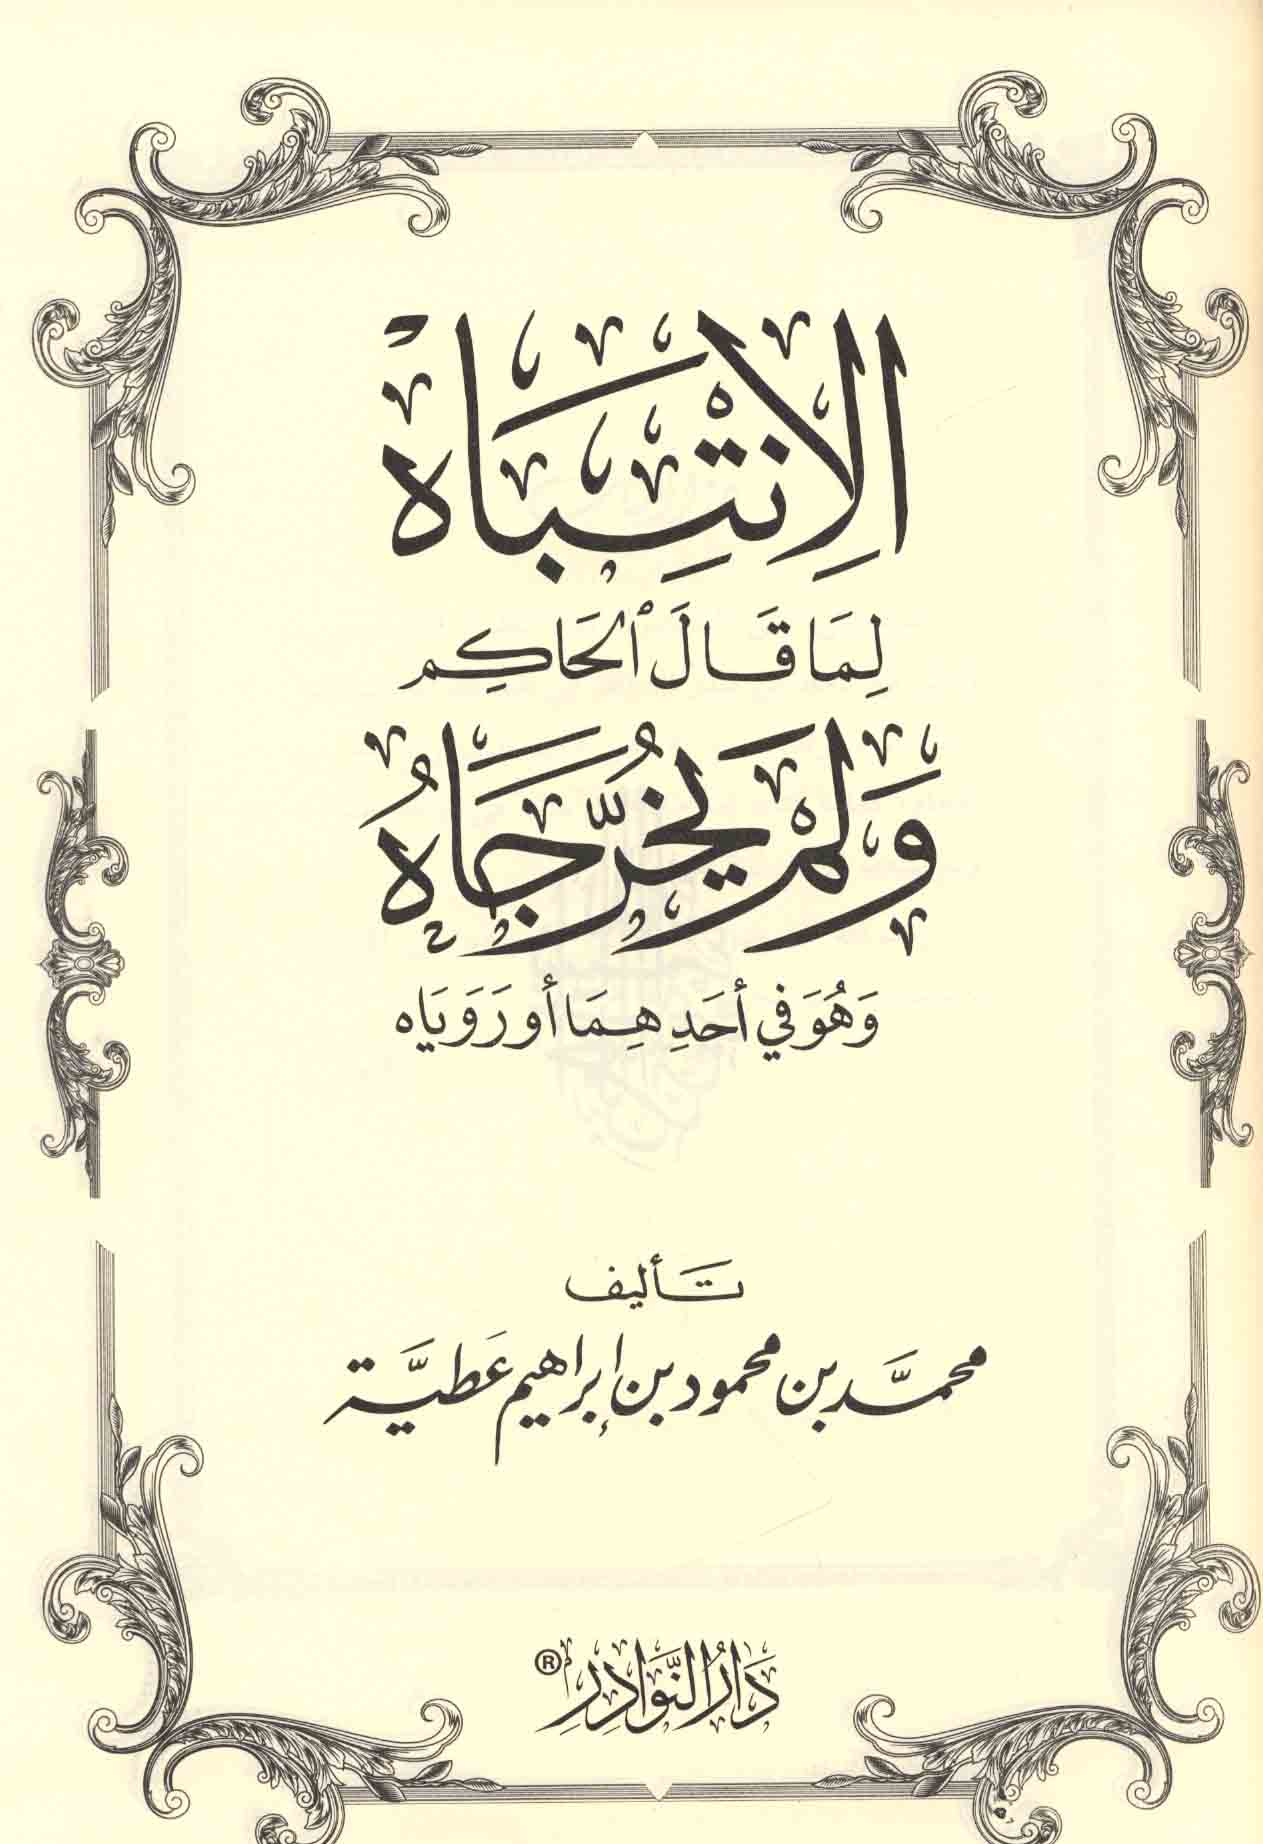 الِانْتِبَاهْ
لِمَا قَالَ ٱلْحَاكِم
وَلَمْ يُخَرِّجَاهُ
وَهُوَ فِي أَحَدِهِمَا أو رَوَيَاه
تَأليف
محمَّد بن محمود بن إبراهيم عَطيَّة
دَارُ النَّوَادِرِ ®